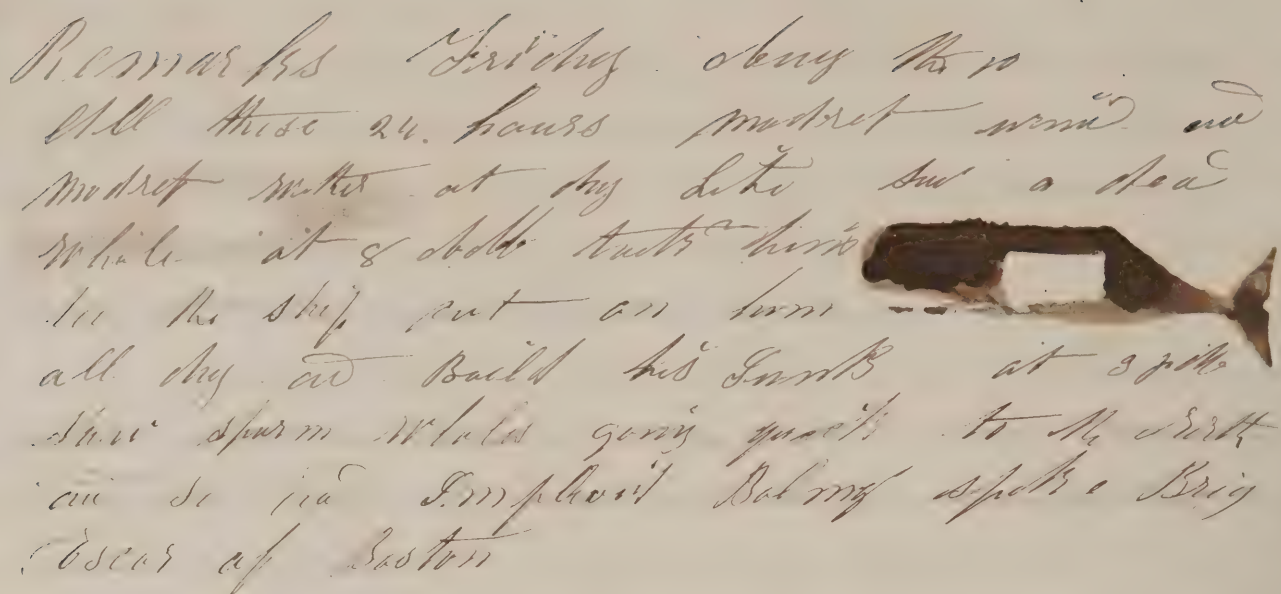 Remarks Friday the 10
All these 24 hours modret wind and
modret wether at day Lite saw a dead
whale at 8 took him
to the ship cut on him
all day and Boild his Junk at 3
saw sperm whales going quick to the North
and so Imployd Boling spoke Brig
Oscar of Boston